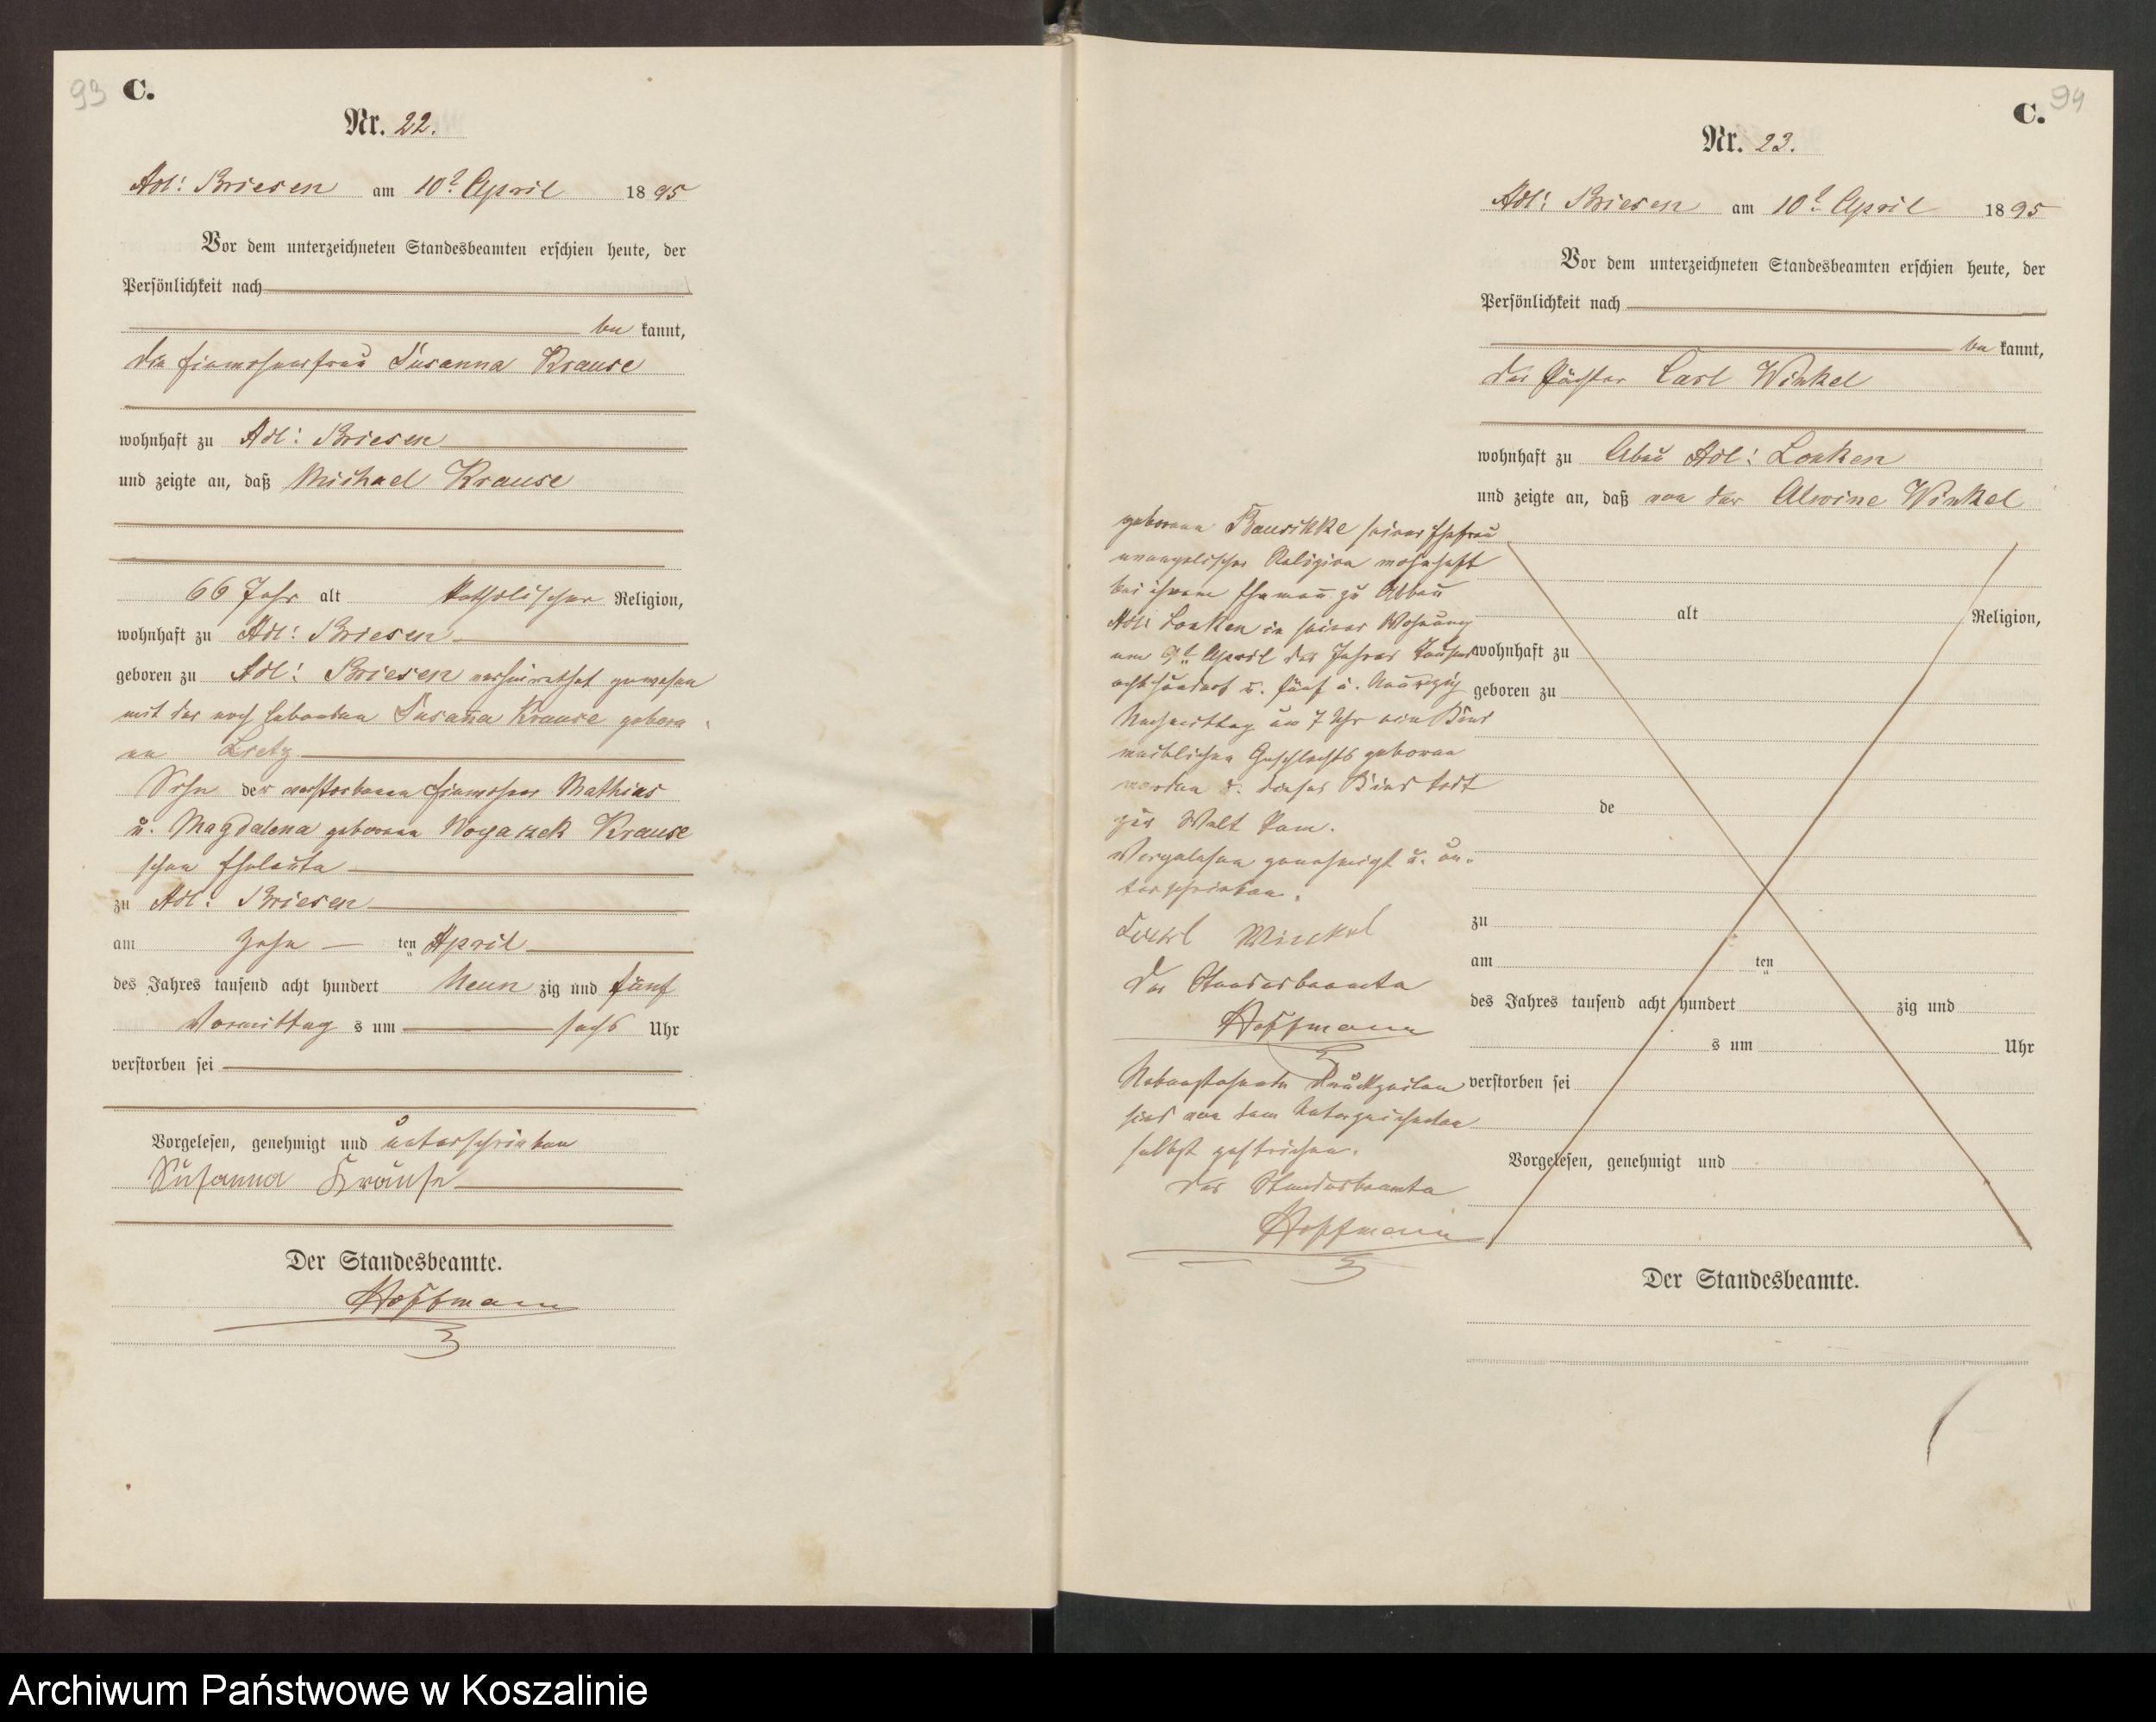 93 C.
Nr. 22.
Adl: Briesen am 10t April 1895
Vor dem unterzeichneten Standesbeamten erschien heute, der
Persönlichkeit nach
be kannt,
die Einwohnerfrau Susanna Krause
wohnhaft zu Adl: Briesen
und zeigte an, daß Michael Krause
66 Jahr alt katholischer Religion,
wohnhaft zu Adl: Briesen
geboren zu Adl: Briesen verheirathet gewesen
mit der noch lebenden Susanna Krause gebore
ne
Sohn der verstorbenen Einwohner Mathias
u. Magdalena geborene Krause
schen Eheleute
zu Adl: Briesen
am Zehn ten April
des Jahres tausend acht hundert Neun zig und fünf
Vormittag s um sechs Uhr
verstorben sei
Vorgelesen, genehmigt und unterschrieben
Susanna Krause
Der Standesbeamte.
Hoffmann
C. 94
Nr. 23.
Adl: Briesen am 10t April 1895
Vor dem unterzeichneten Standesbeamten erschien heute, der
Persönlichkeit nach
be kannt,
der Pächter Carl Winkel
wohnhaft zu Abau Adl: Lonken
und zeigte an, daß von der Alwine Winkel
geborene seiner Ehefrau
evangelischer Religion wohnhaft
bei ihrem Ehemann zu Abbau
Adl: Lonken in seiner Wohnung
am 9t April des Jahres tausend
achthundert u. fünf u. Neunzig
Nachmittag um 7 Uhr ein Kind
weiblichen Geschlechts geboren
worden u. dieses Kind todt
zur Welt kam.
Vorgelesen genehmigt u. un-
terschrieben.
Carl Winkel
Der Standesbeamte
Hoffmann
Nebenstehende Druckzeilen
sind von dem Unterzeichneten
selbst gestrichen.
Der Standesbeamte
Hoffmann
alt Religion,
wohnhaft zu
geboren zu
de
zu
am ten
des Jahres tausend acht hundert zig und
s um Uhr
verstorben sei
Vorgelesen, genehmigt und
Der Standesbeamte.
Archiwum Państwowe w Koszalinie